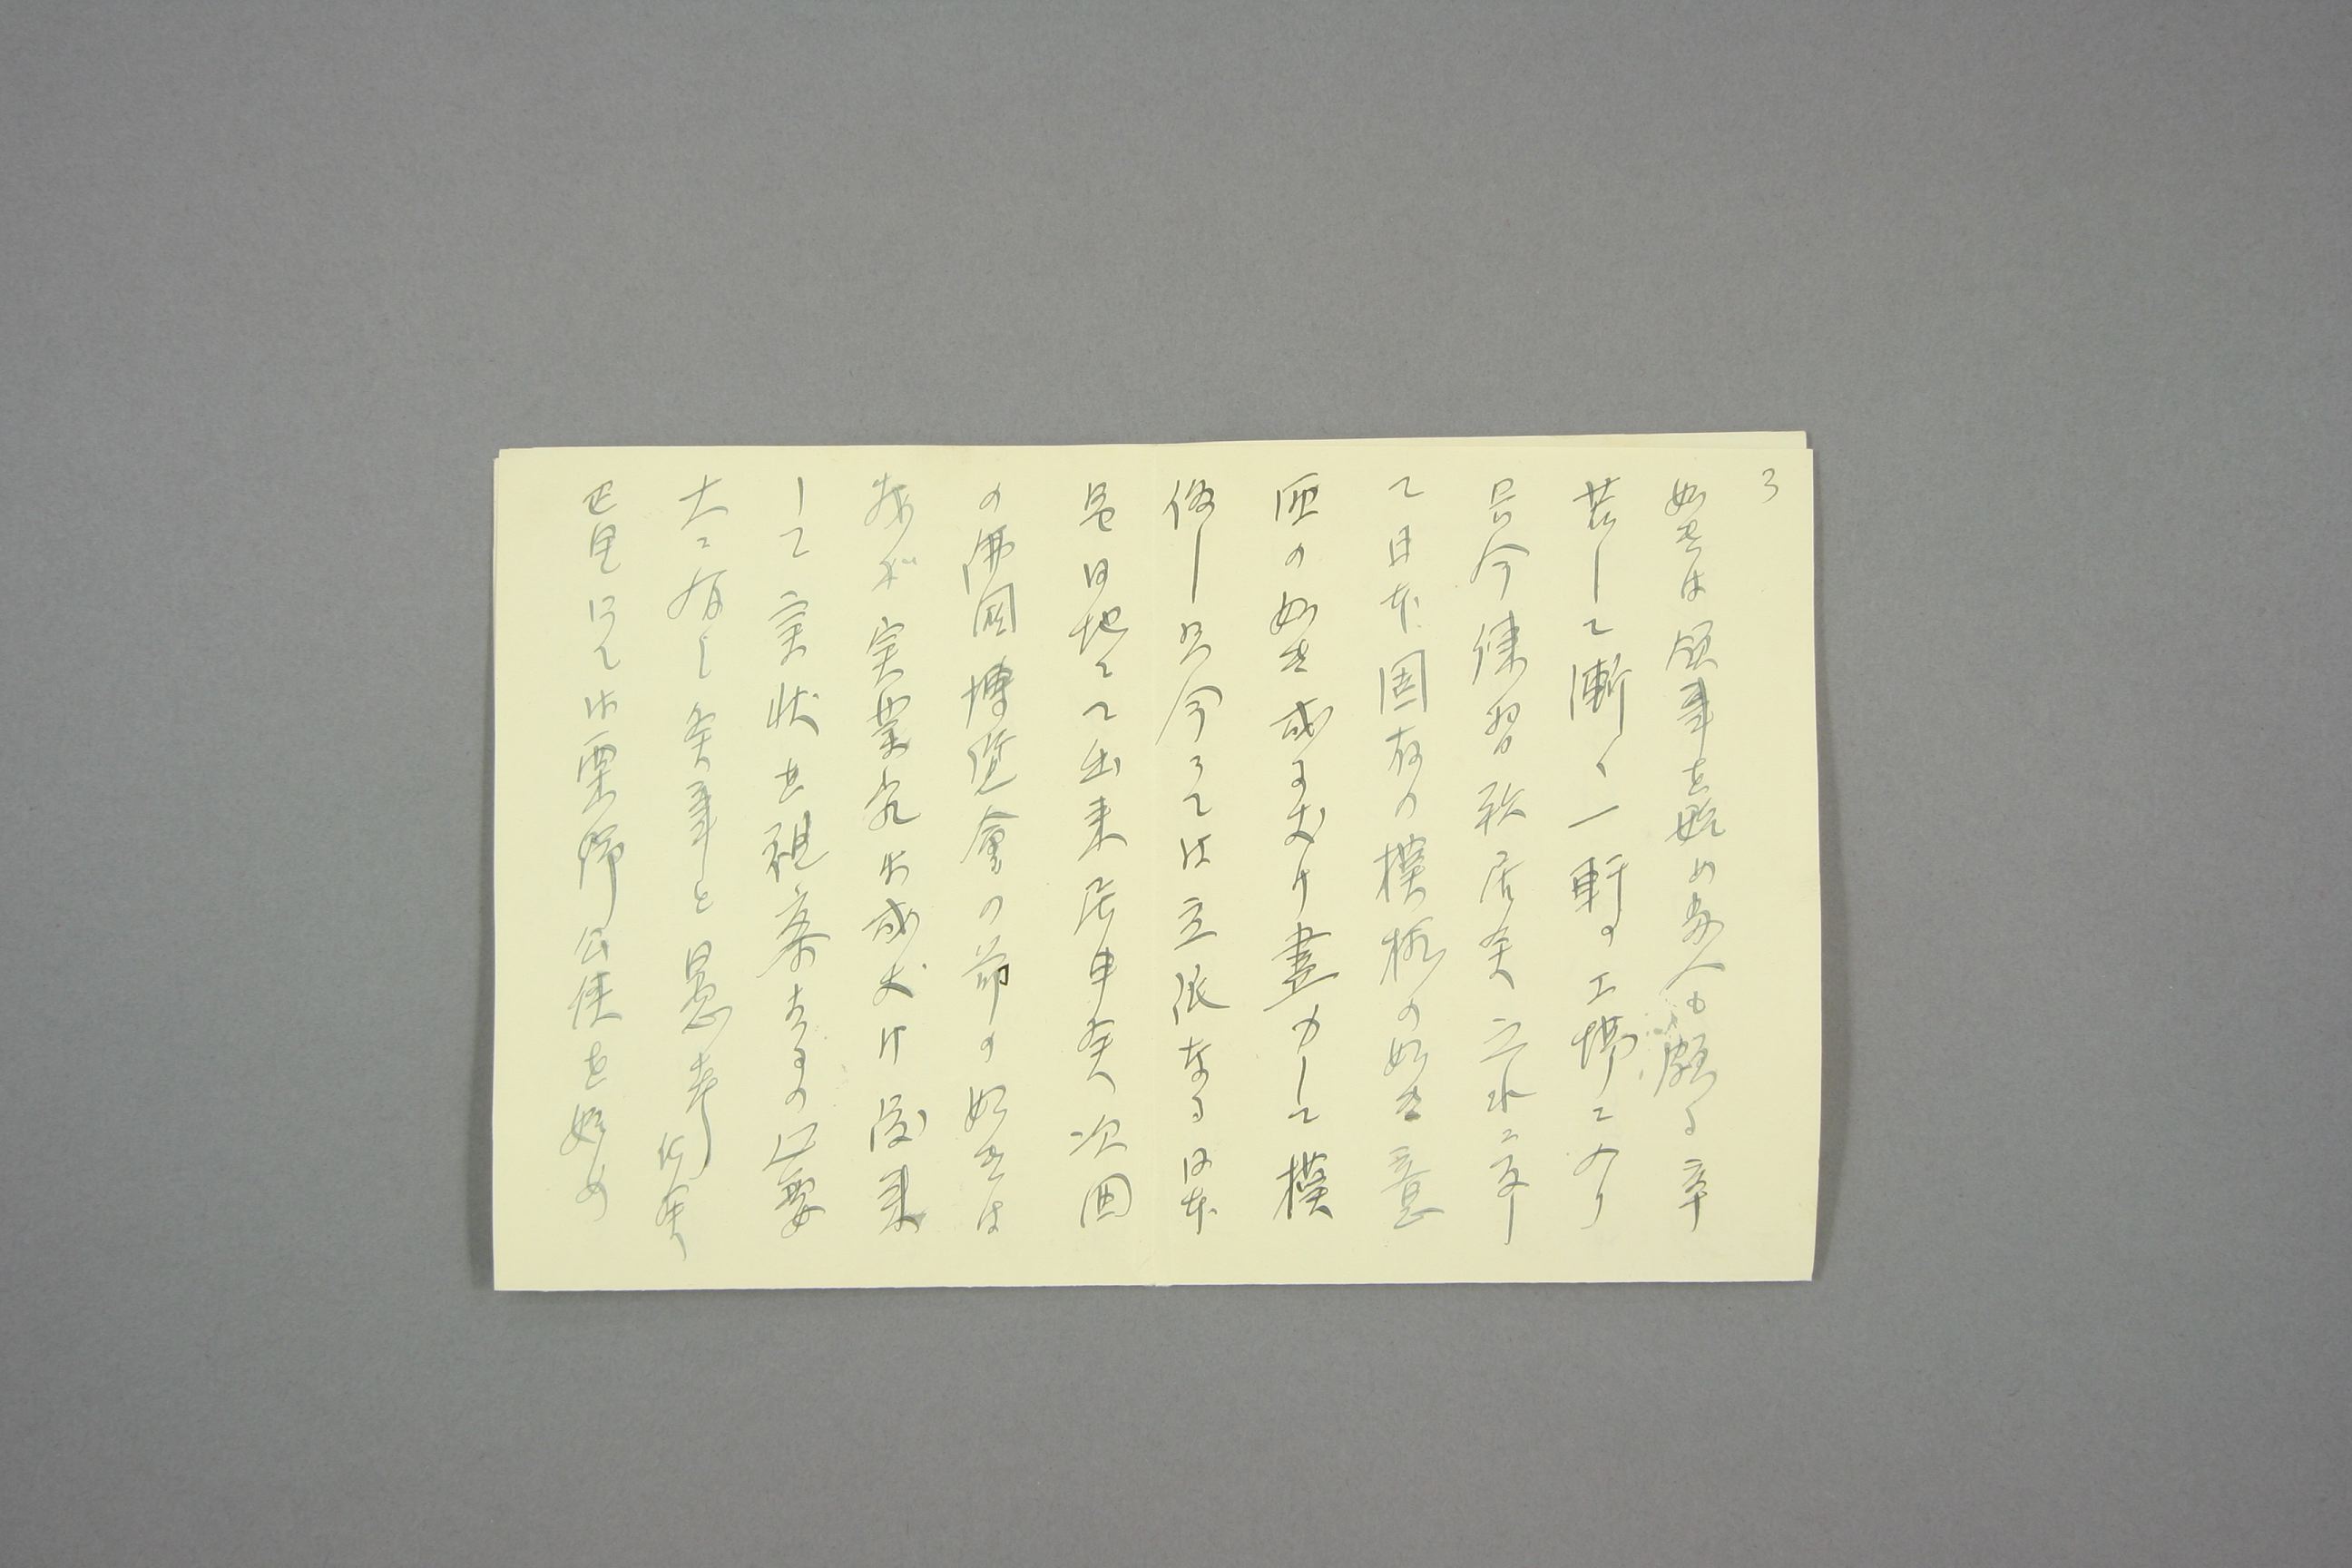 3
如きは領事を始め数人も頗る辛
苦して漸く一軒の工場に入り
只今練習致居候 之れに家
て日本固有の模様の如き意
匠の如き成る丈け盡力して模
倣し只今にては立派なる日本
品同地にて出来居申候 次回
の佛国博覧會の節の如きは
我が実業家出成丈け渡来
して実状を視察するの必要
大に有し候事と愚考仕候
巴里にては栗野公使を始め